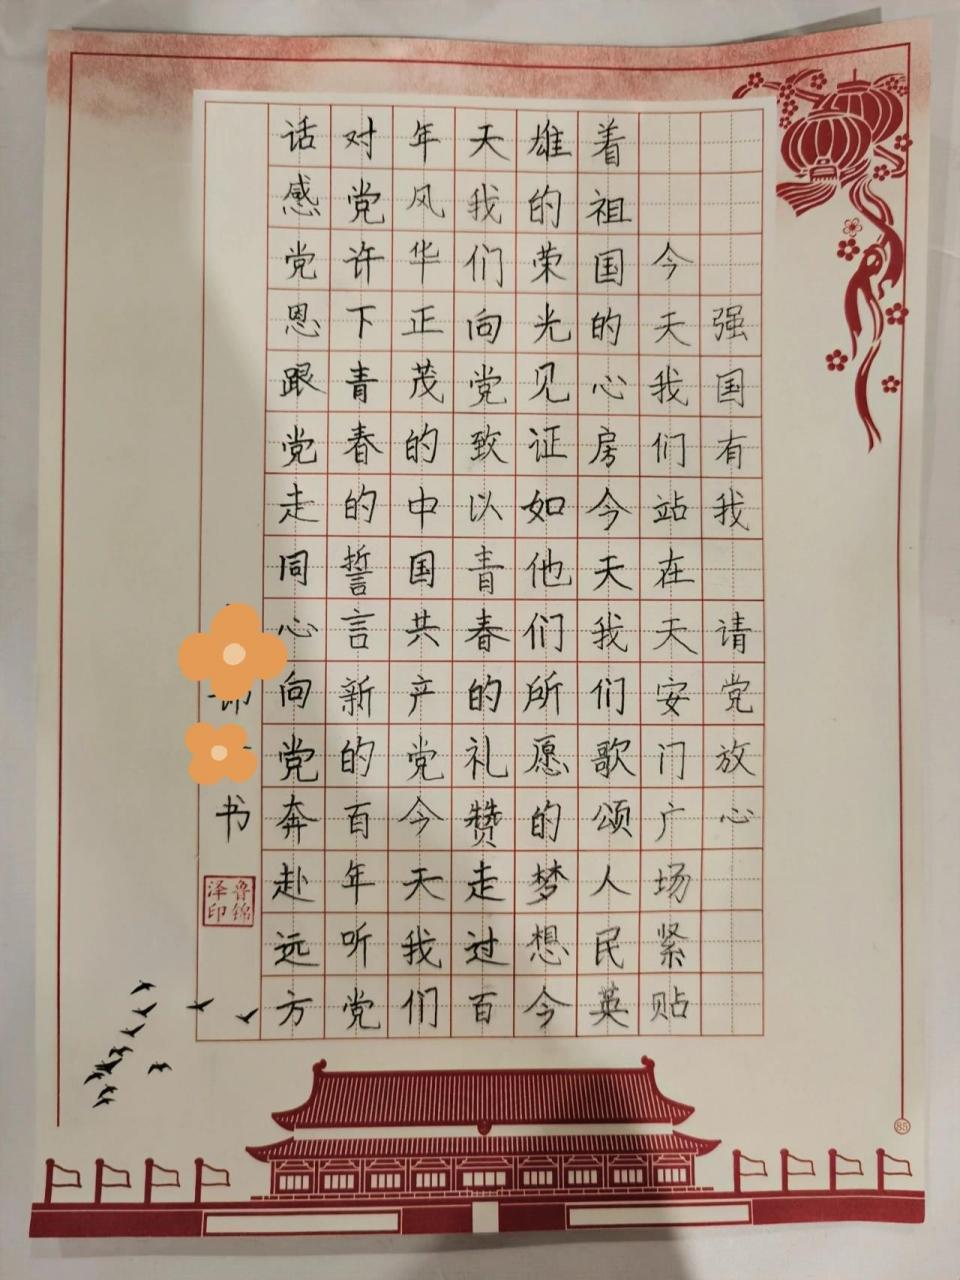 强国有我 请党放心
今天我们站在天安门广场紧贴
着祖国的心房今天我们歌颂人民英
雄的荣光见证如他们所愿的梦想今
天我们向党致以青春的礼赞走过百
年风华正茂的中国共产党今天我们
对党许下青春的誓言新的百年听党
话感党恩跟党走同心向党奔赴远方
书
鲁锦泽印
85